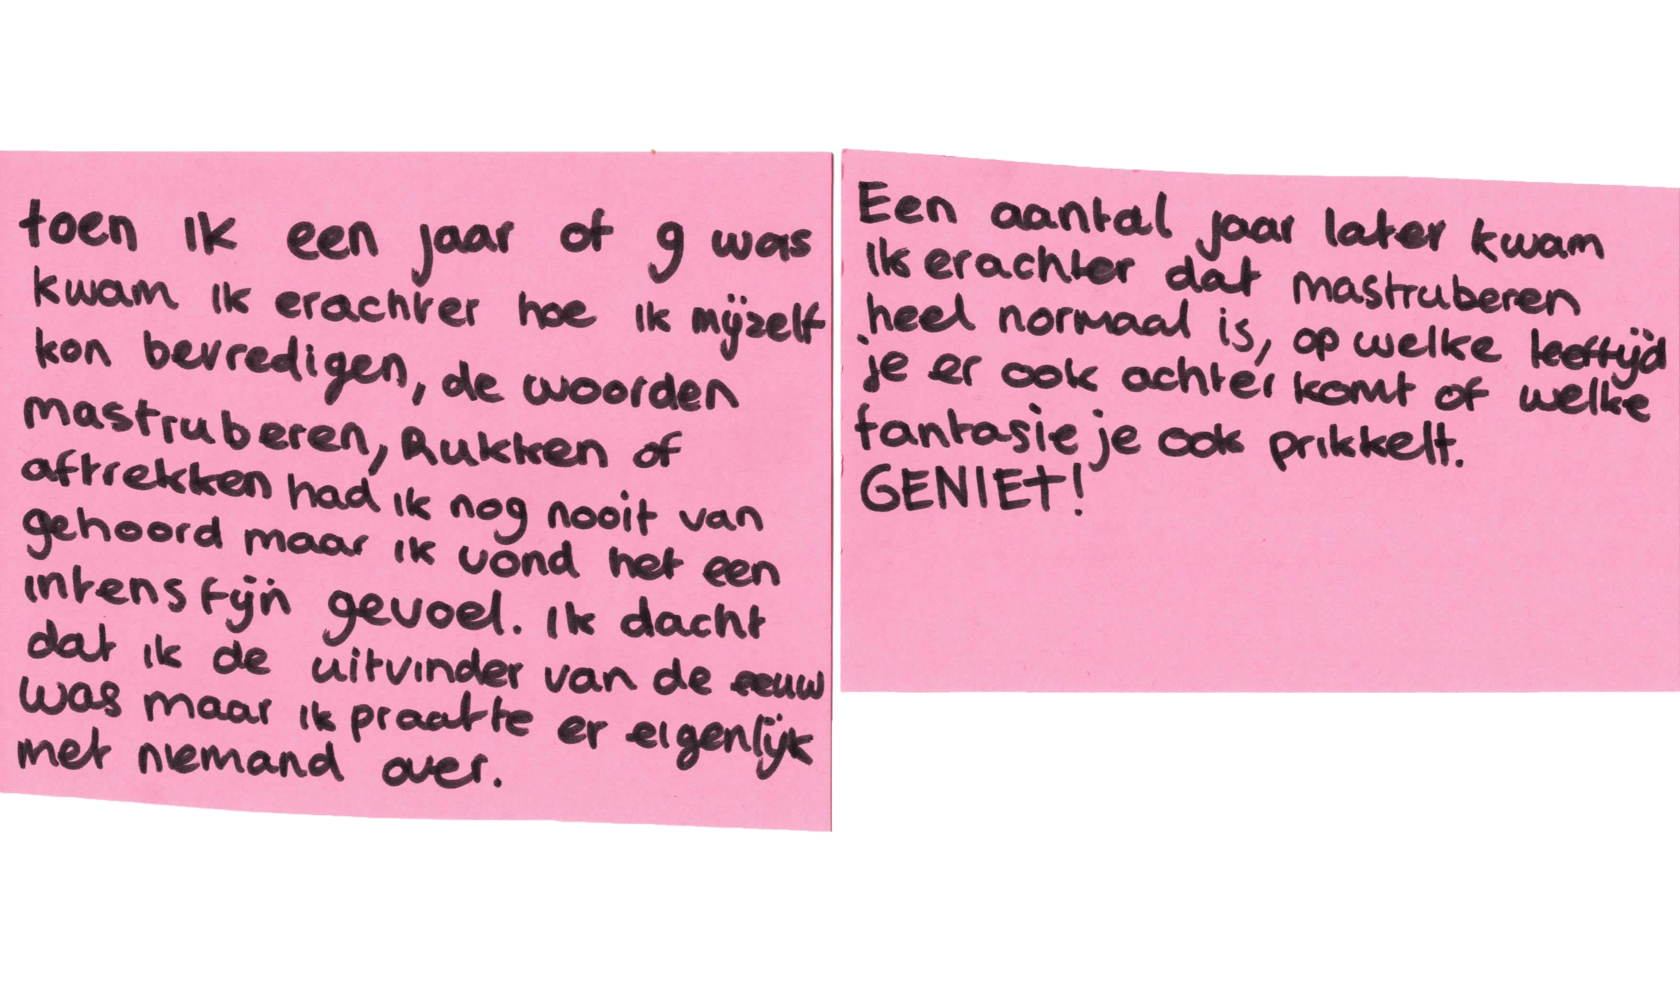 toen ik een jaar of 9 was
kwam ik erachter hoe ik mijzelf
kon bevredigen, de woorden
mastruberen, Rukken of
aftrekken had ik nog nooit van
gehoord maar ik vond het een
intens fijn gevoel. Ik dacht
dat ik de uitvinder van de eeuw
was maar ik praatte er eigenlijk
met niemand over.
Een aantal jaar later kwam
ik erachter dat mastruberen
heel normaal is, op welke leeftijd
je er ook achter komt of welke
fantasie je ook prikkelt.
GENIET!